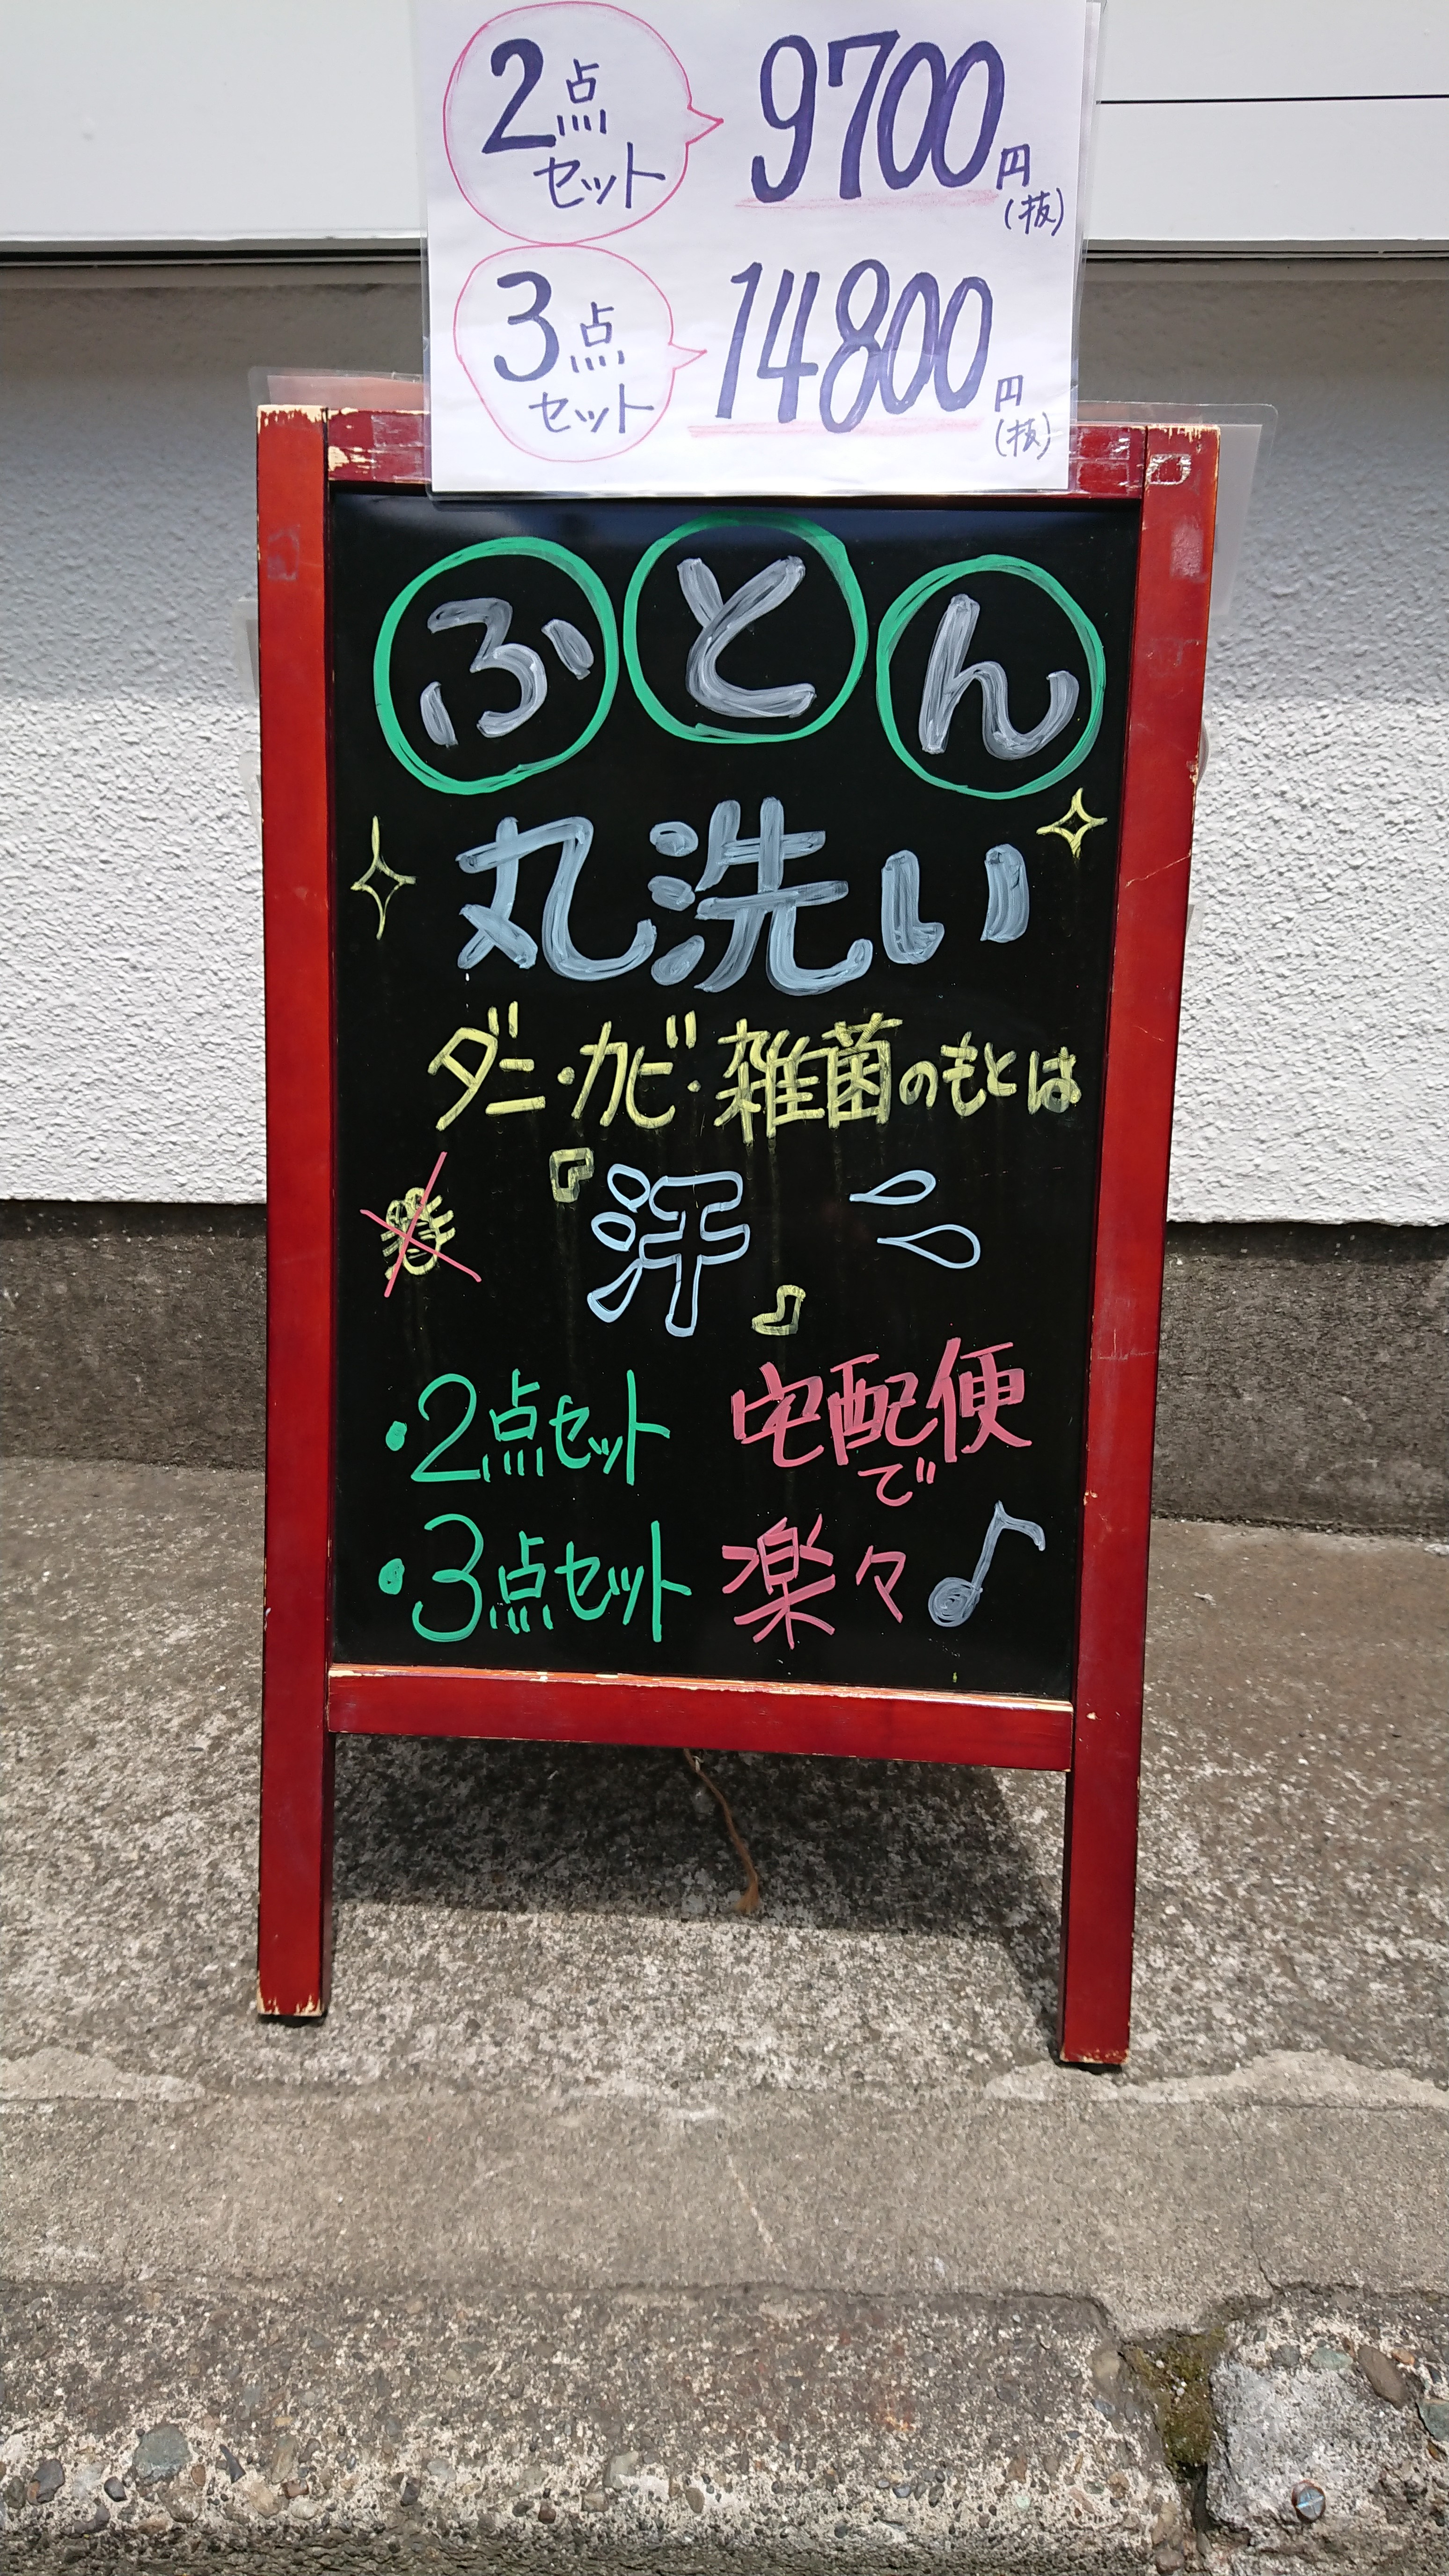 2点セット 9700円(抜)
3点セット 14800円(抜)
ふとん
丸洗い
ダニ・カビ・雑菌のもとは
『汗』
・2点セット
・3点セット
宅配便
で
楽々♪